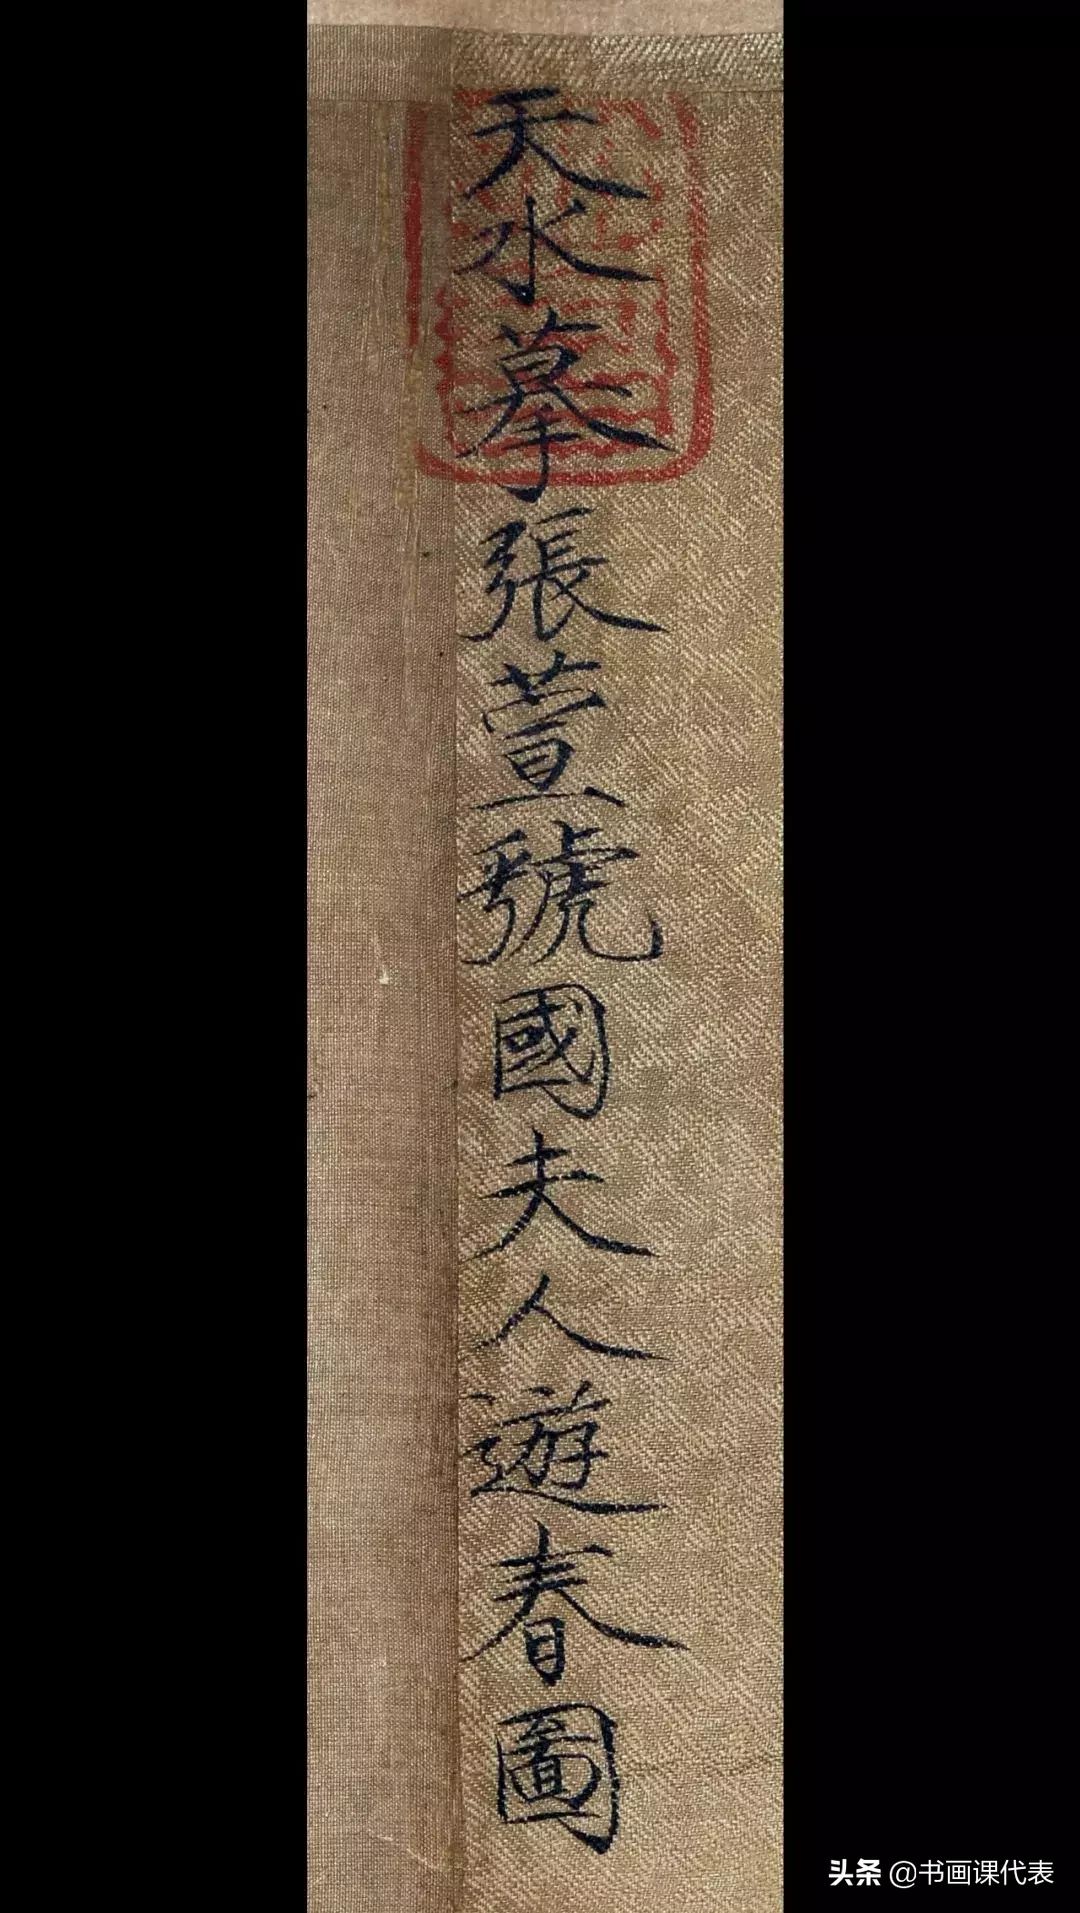 天水摹張萱虢國夫人遊春圖
头条 @书画课代表